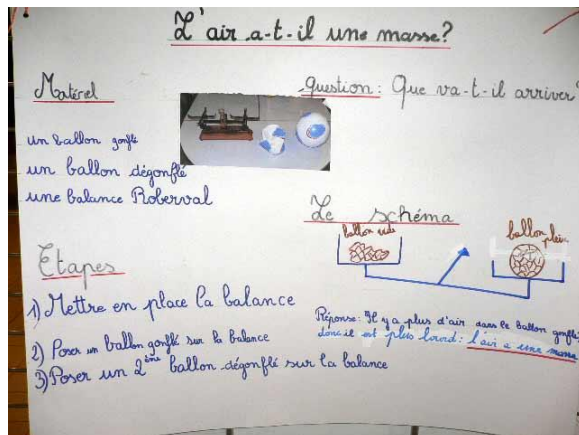 L'air a-t-il une masse?
Matériel
un ballon gonflé
un ballon dégonflé
une balance Roberval
Question: Que va-t-il arriver?
Le schéma
ballon vide
ballon plein
Etapes
1) Mettre en place la balance
2) Poser un ballon gonflé sur la balance
3) Poser un 2ème ballon dégonflé sur la balance
Réponse: Il y a plus d'air dans le ballon gonflé,
donc il est plus lourd: l'air a une masse